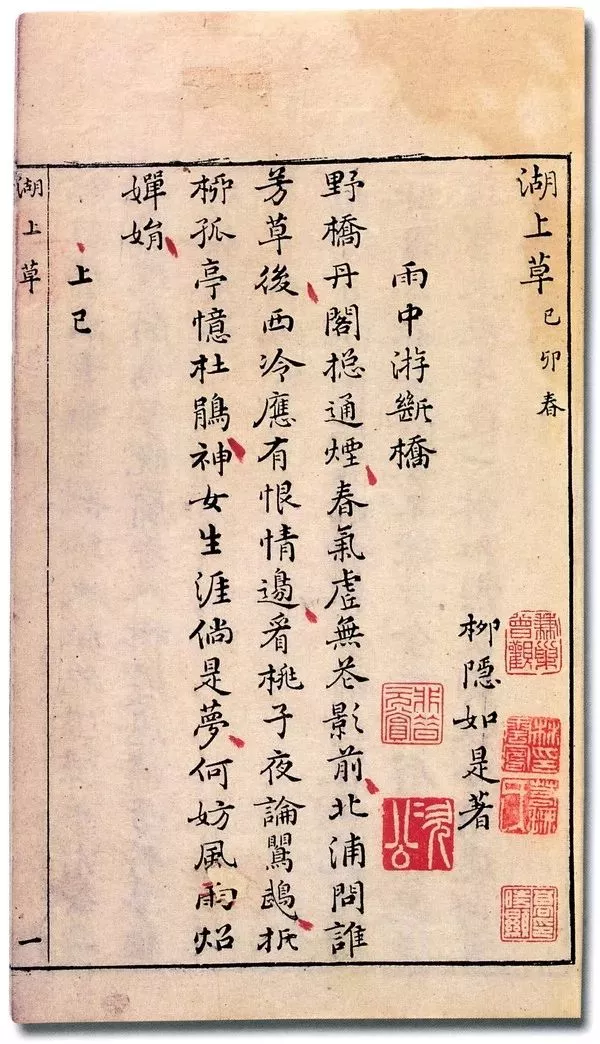 湖上草 己卯春
柳隱如是著
雨中游斷橋
野橋丹閣捴通煙春氣虛無花影前北浦問誰
芳草後西泠應有恨情邊看桃子夜論鸎鵡折
柳孤亭憶杜鵑神女生涯倘是夢何妨風雨炤
嬋娟
上巳
湖上草
一